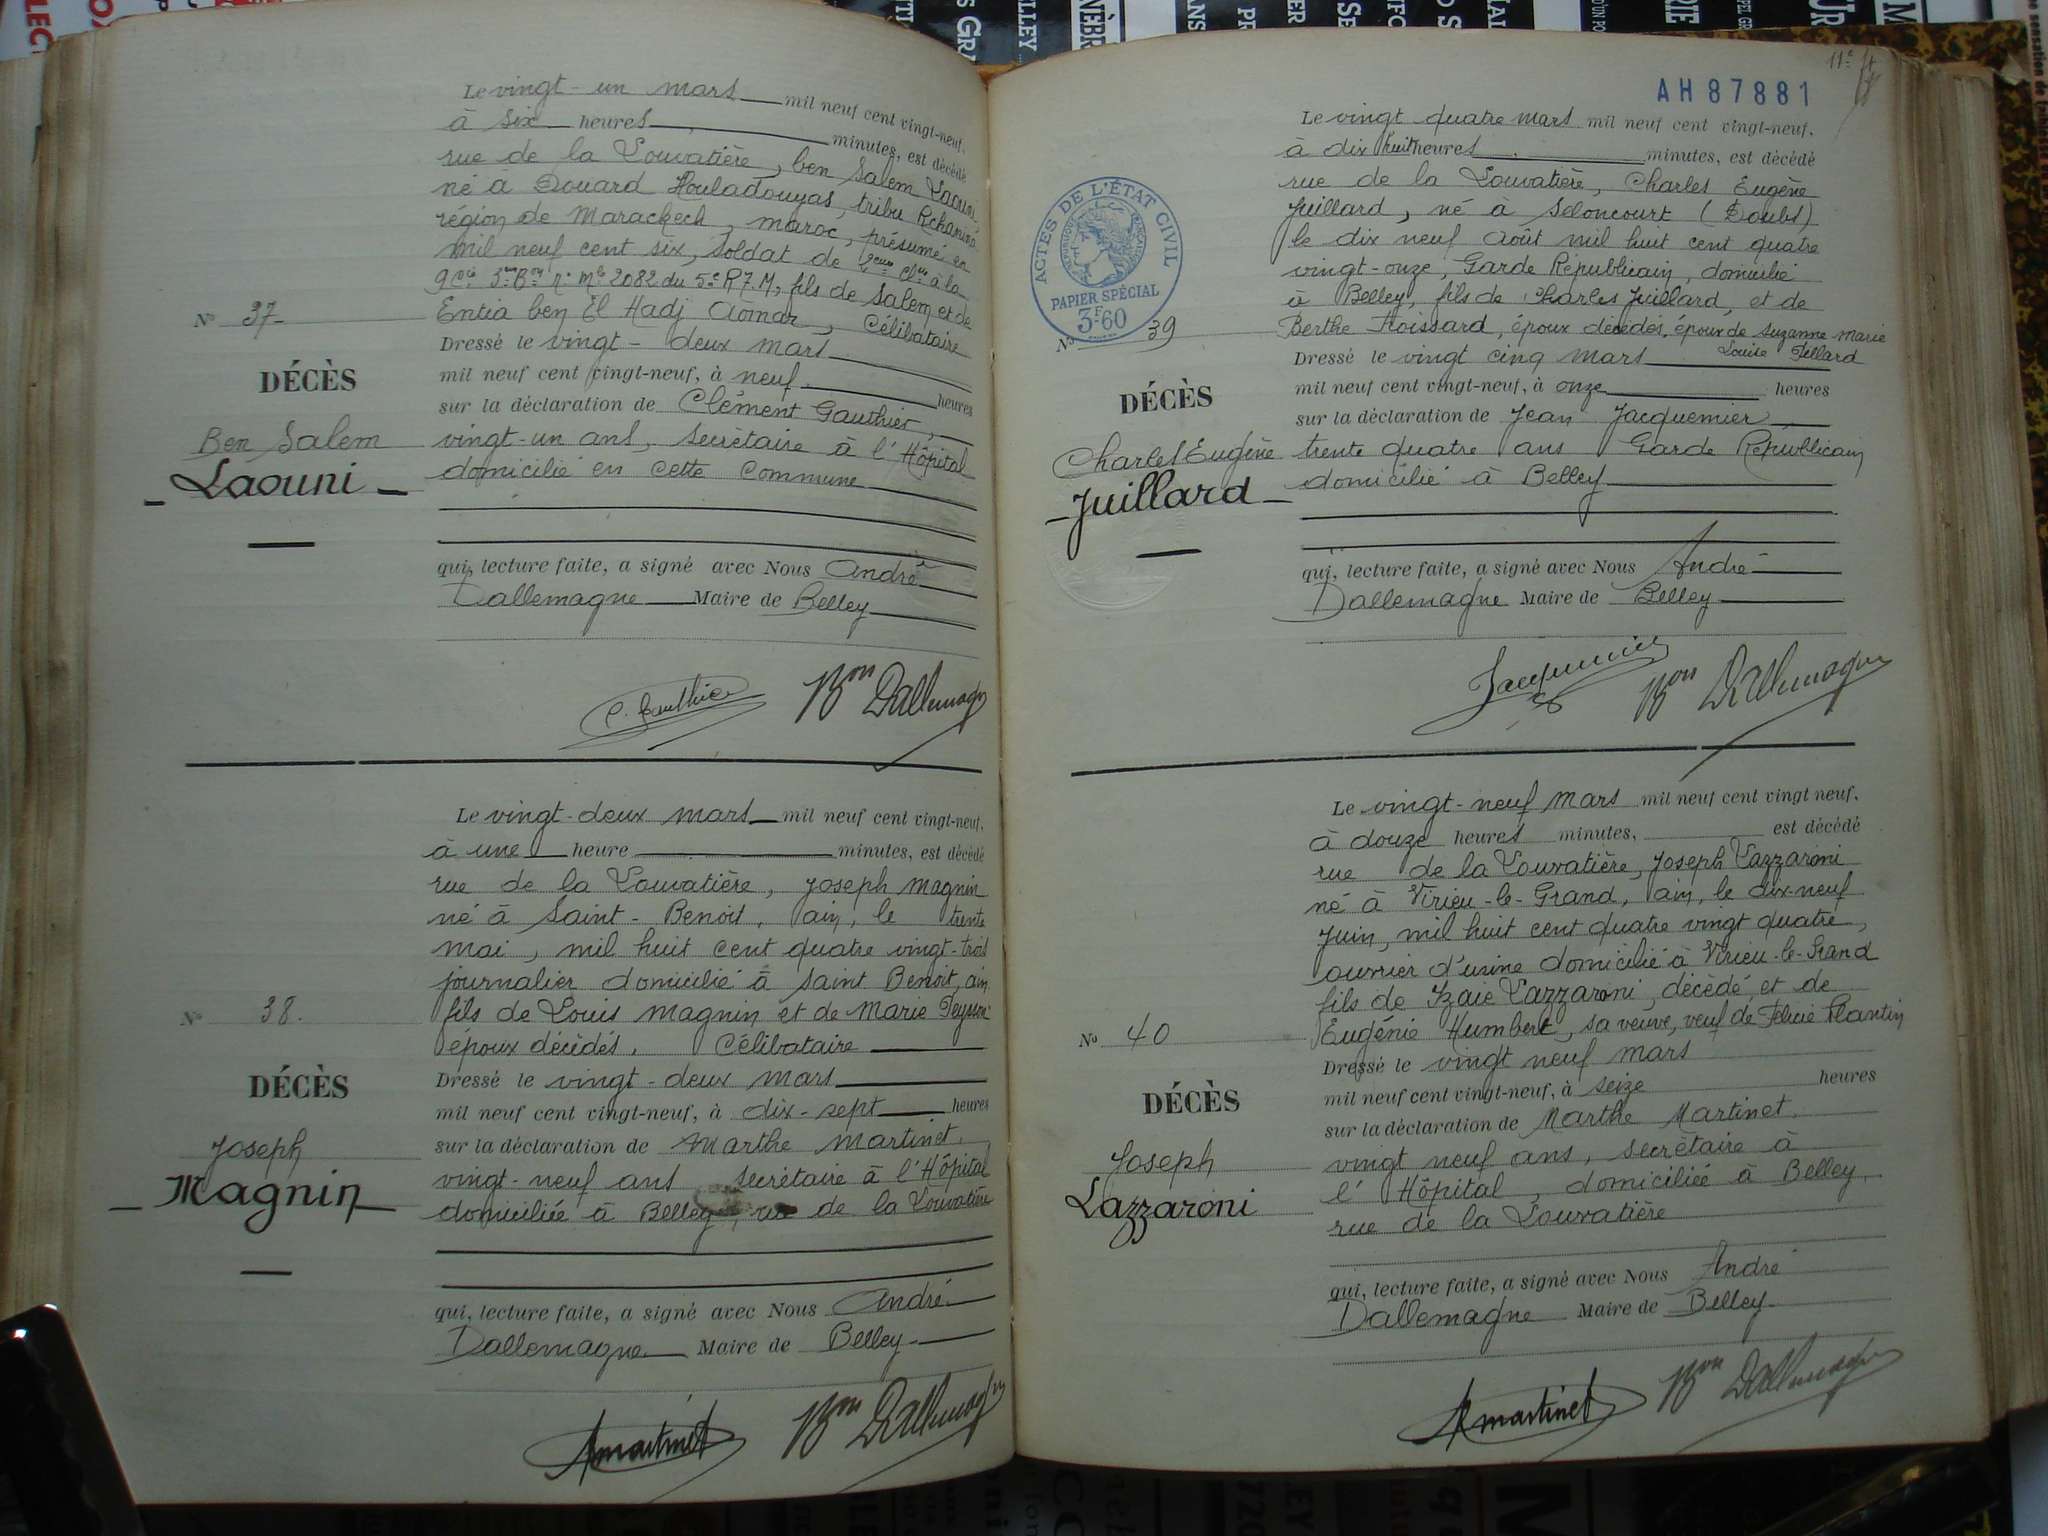 Le vingt-un mars mil neuf cent vingt-neuf,
à six heures minutes, est décédé
rue de la Louvatière, ben Salem Laouni
né à Douard Houladouyas, tribu
région de Marackech, maroc, présumé en
mil neuf cent six, soldat de 2eme cl à la
9 Cie 3me Bon no Mle 2082 du 5e R7M, fils de Salem et de
Entia ben El Hadj Aomar, Célibataire
No 37
Dressé le vingt-deux mars
mil neuf cent vingt-neuf, à neuf heures
DÉCÈS
sur la déclaration de Clément Gauthier,
Ben Salem
vingt-un ans, secrétaire à l'Hôpital
Laouni
domicilié en cette commune
qui, lecture faite, a signé avec Nous André
Dallemagne Maire de Belley
C. Gauthier Bon Dallemagne
Le vingt-deux mars mil neuf cent vingt-neuf,
à une heure minutes, est décédé
rue de la Louvatière, Joseph Magnin
né à Saint-Benoit, ain, le trente
mai, mil huit cent quatre vingt-trois
journalier domicilié à Saint Benoit, ain
No 38.
fils de Louis Magnin et de Marie
époux décédés. Célibataire
DÉCÈS
Dressé le vingt-deux mars
mil neuf cent vingt-neuf, à dix-sept heures
Joseph
sur la déclaration de Marthe Martinet,
Magnin
vingt-neuf ans secrétaire à l'Hôpital
domiciliée à Belley, rue de la Louvatière
qui, lecture faite, a signé avec Nous André
Dallemagne Maire de Belley
Martinet Bon Dallemagne
11e
AH 87881
Le vingt quatre mars mil neuf cent vingt-neuf,
à dix huit heures minutes, est décédé
ACTES DE L'ÉTAT CIVIL
RÉPUBLIQUE FRANÇAISE
PAPIER SPÉCIAL
3F60
rue de la Louvatière, Charles Eugène
Juillard, né à Seloncourt (Doubs)
le dix neuf Août mil huit cent quatre
vingt-onze, Garde Républicain, domicilié
à Belley, fils de Charles Juillard, et de
Berthe Froissard, époux décédés, époux de Suzanne Marie
Louise Pellard
No 39
Dressé le vingt cinq mars
mil neuf cent vingt-neuf, à onze heures
DÉCÈS
sur la déclaration de Jean Jacquemier,
Charles Eugène
trente quatre ans Garde Républicain
Juillard
domicilié à Belley
qui, lecture faite, a signé avec Nous André
Dallemagne Maire de Belley
Jacquemier Bon Dallemagne
Le vingt-neuf mars mil neuf cent vingt neuf,
à douze heures minutes, est décédé
rue de la Louvatière, Joseph Lazzaroni
né à Virieu-le-Grand, ain, le dix-neuf
Juin, mil huit cent quatre vingt quatre,
ouvrier d'usine domicilié à Virieu-le-Grand
fils de Izaie Lazzaroni, décédé, et de
Eugénie Humbert, sa veuve, veuf de Félicie Plantin
No 40
Dressé le vingt neuf mars
mil neuf cent vingt-neuf, à seize heures
DÉCÈS
sur la déclaration de Marthe Martinet
Joseph
vingt neuf ans, secrétaire à
Lazzaroni
l'Hôpital, domiciliée à Belley,
rue de la Louvatière
qui, lecture faite, a signé avec Nous André
Dallemagne Maire de Belley
Martinet Bon Dallemagne